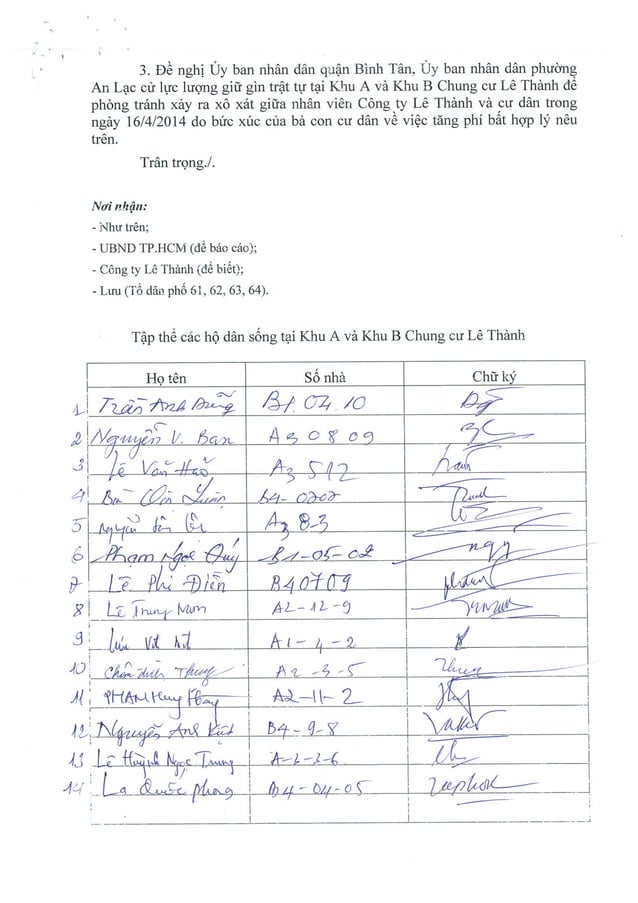 3. Đề nghị Ủy ban nhân dân quận Bình Tân, Ủy ban nhân dân phường
An Lạc cử lực lượng giữ gìn trật tự tại Khu A và Khu B Chung cư Lê Thành để
phòng tránh xảy ra xô xát giữa nhân viên Công ty Lê Thành và cư dân trong
ngày 16/4/2014 do bức xúc của bà con cư dân về việc tăng phí bất hợp lý nêu
trên.
Trân trọng./.
Nơi nhận:
- Như trên;
- UBND TP.HCM (để báo cáo);
- Công ty Lê Thành (để biết);
- Lưu (Tổ dân phố 61, 62, 63, 64).
Tập thể các hộ dân sống tại Khu A và Khu B Chung cư Lê Thành
Họ tên Số nhà Chữ ký
1 Trần Anh Dũng B1.04.10
2 Nguyễn V. Ban A3 08 09
3 Lê Văn Hảo A3 512
4 B4-0202
5 A3 8-3
6 Phạm Ngọc Quý B1-05-02 ngy
7 Lê Phi Điền B40709
8 Lê Trung Nam A2-12-9
9 A1-4-2
10 Thung A2-3-5
11 PHAM Huy Hoàng A2-11-2
12 Nguyễn Anh Kiệt B4-9-8
13 Lê Huỳnh Ngọc Trung A-3-3-6
14 La Quốc phong B4-04-05